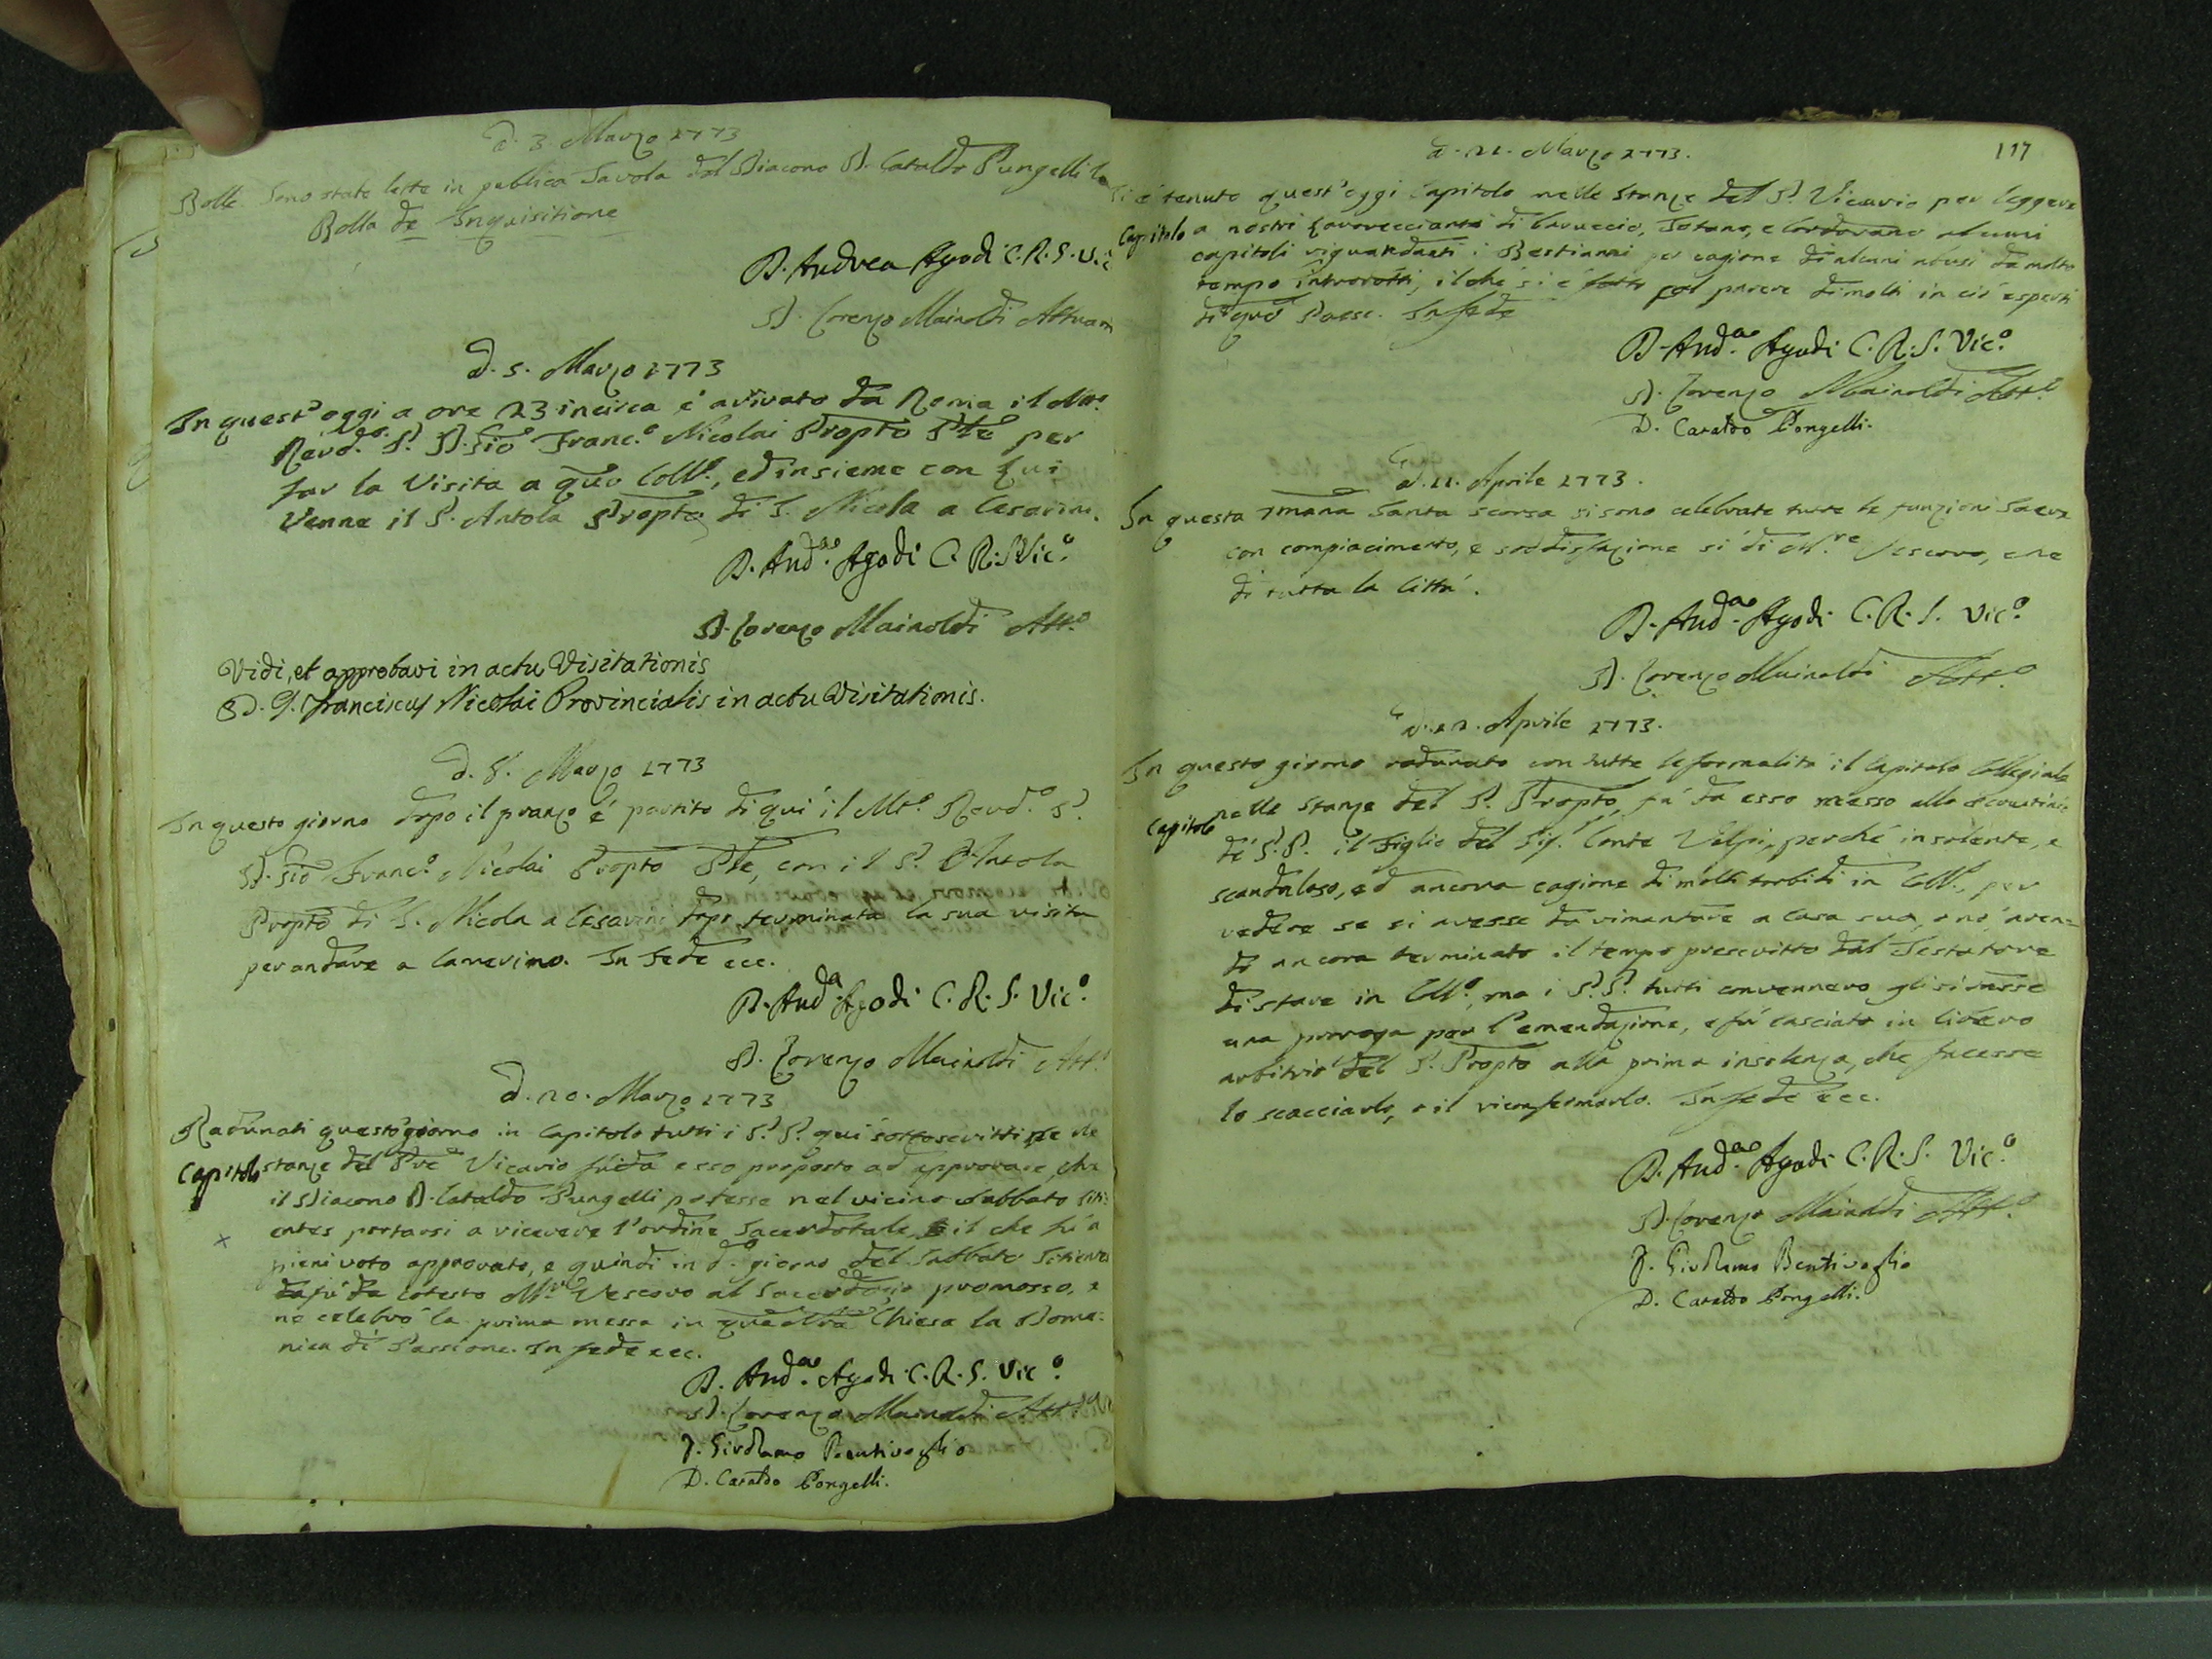 a. 3. Marzo 1773
Bolle Sono state lette in publica Tavola dal Diacono D. Cataldo Pungelli le
Bolla de Inquisitione
D. Andrea Agodi C. R. S. Vic
D. Lorenzo Mainoldi Attuar
a. 5. Marzo 1773
In quest'oggi a ore 23 incirca é arivato da Roma il Mto.
Revd.o P. D. Gio Franc.o Nicolai Propto Ple per
far la Visita a quo Coll.o, ed insieme con lui
Venne il P. Antola Propto di S. Nicola a Cesarini.
D. And.ao Agodi C. R. S. Vic.o
D. Lorenzo Mainoldi Att.o
Vidi, et approbavi in actu Visitationis
D. J. Franciscus Nicolai Provincialis in actu Visitationis.
a. 8. Marzo 1773
In questo giorno dopo il pranzo é partito di qui il Mto. Revd.o P.
D. Gio Franc.o Nicolai Propto Ple, con il P. Antola
Propto di S. Nicola a Cesarini dopo terminata la sua visita
per andare a Camerino. In Fede ecc.
D. And.a Agodi C. R. S. Vic.o
D. Lorenzo Mainoldi Att.o
a. 20. Marzo 1773
Radunati questo giorno in Capitolo tutti i P. P. qui sottoscritti nelle
Capitolo stanze del Pre Vicario fú da esso proposto ad approvare, che
il Diacono D. Cataldo Pungelli potesse nel vicino Sabbato Siti=
entes portarsi a ricevere l'ordine Sacerdotale, il che fú a
pieni voti approvato, e quindi in d.o giorno del Sabbato Sitientes
fú da cotesto Mr. Vescovo al Sacerdozio promosso, e
ne celebró la prima messa in questa Chiesa la Dome=
nica di Passione. In fede ecc.
D. And.ao Agodi C. R. S. Vic.o
D. Lorenzo Mainoldi Att.o
D. Girolamo Bentivoglio
D. Cataldo Pongelli.
117
a. 21. Marzo 1773.
Si é tenuto quest'oggi Capitolo nelle Stanze del P. Vicario per leggere
Capitolo a nostri lavoreccianti di Caruccio, Totano, e Cordovano alcuni
capitoli riguardanti i Bestiami per cagione di alcuni abusi da molto
tempo introrotti, il che si é fatto col parere di molti in ció esperti
di quo Paese. In fede
D. And.ao Agodi C. R. S. Vic.o
D. Lorenzo Mainoldi Att.o
D. Cataldo Pongelli.
a. 11. Aprile 1773.
In questa 7mana Santa scorsa si sono celebrate tutte le funzioni Sacre
con compiacimento, e soddisfazione sí di M.re Vescovo, che
di tutta la Cittá.
D. And.ao Agodi C. R. S. Vic.o
D. Lorenzo Mainoldi Att.o
a. 12. Aprile 1773.
In questo giorno radunato con tutte le formalitá il Capitolo Collegiale
Capitolo nelle Stanze del P. Propto, fú da esso messo allo scrutinio
de' P. P. il Figlio del Sig. Conte Volpi, perché insolente, e
scandaloso, ed ancora cagione di molti torbidi in Coll.o, per
vedere se si avesse da rimandare a Casa sua, o nó aven=
do ancora terminato il tempo prescritto dal Testatore
di stare in Coll.o, ma i P. P. tutti convennero gli si desse
una proroga per l'emendazione, e fú lasciato in libero
arbitrio del P. Propto alla prima insolenza, che facesse
lo scacciarlo, o il riconfermarlo. In fede ecc.
D. And.ao Agodi C. R. S. Vic.o
D. Lorenzo Mainoldi Att.o
D. Girolamo Bentivoglio
D. Cataldo Pongelli.